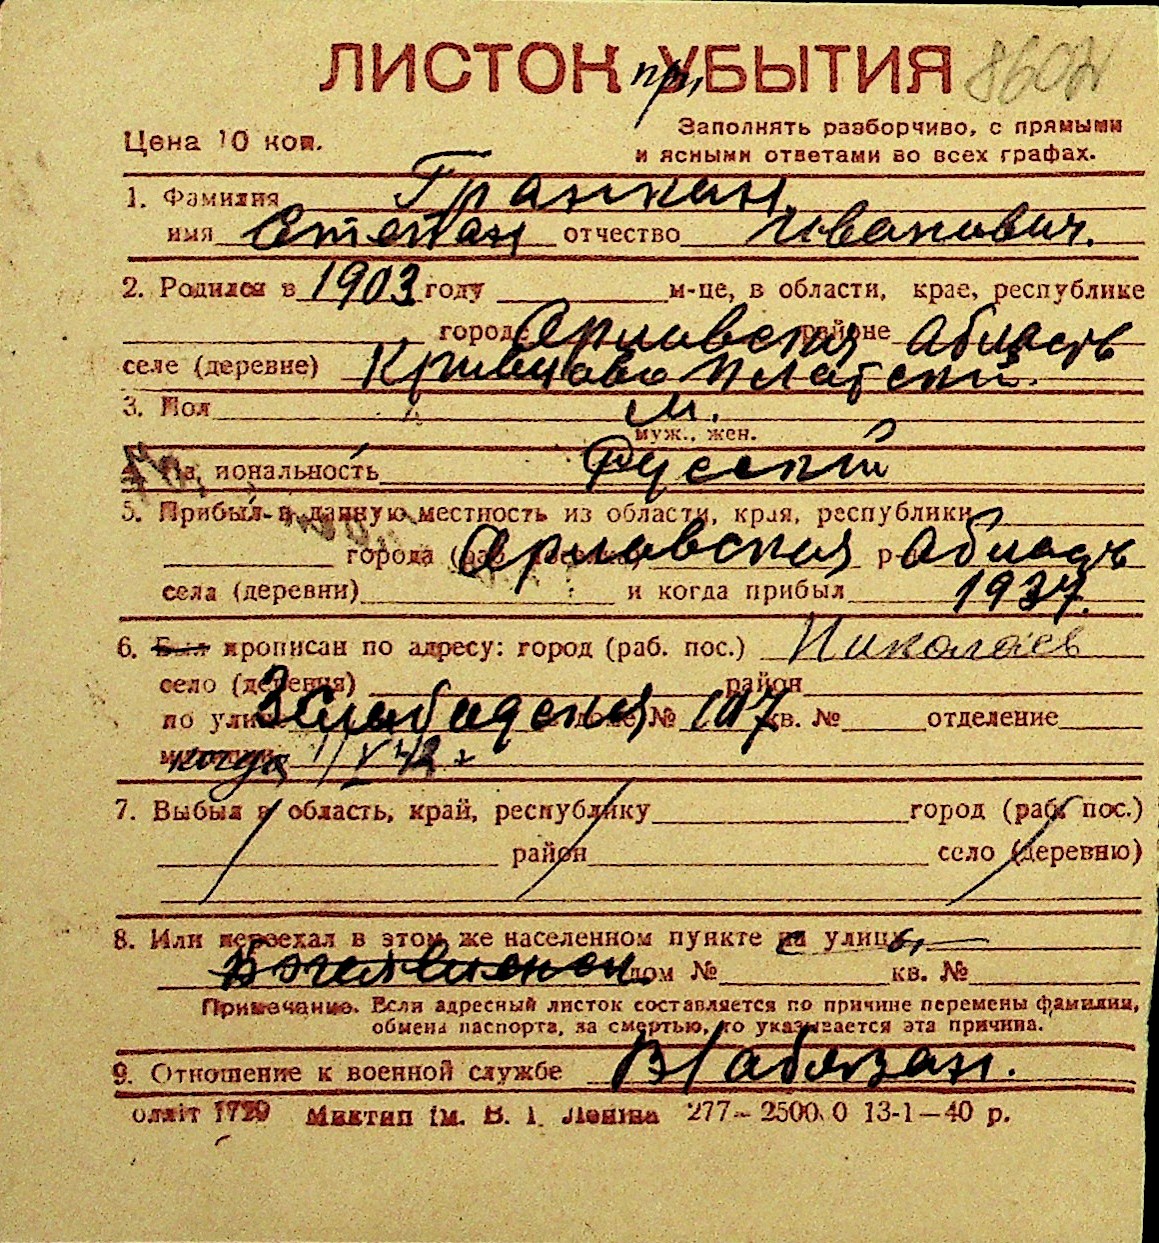 ЛИСТОК пр. УБЫТИЯ
Цена 10 коп.
Заполнять разборчиво, с прямыми
и ясными ответами во всех графах.
1. Фамилия Гранкин
имя Степан отчество Иванович.
2. Родился в 1903 году м-це, в области, крае, республике
городе Арловская районе Абласть
селе (деревне) Кривцово
3. Пол м.
муж., жен.
4. Национальность Руский
5. Прибыл в данную местность из области, края, республики
города (раб. поселка) Арловская р-н Абласть
села (деревни) и когда прибыл 1937.
6. Был прописан по адресу: город (раб. пос.) Николаев
село (деревня) район
по улице 3 Слабадская дом № 107 кв. № отделение
милиции когда
7. Выбыл в область, край, республику город (раб. пос.)
район село (деревню)
8. Или переехал в этом же населенном пункте на улицу
дом № кв. №
Примечание. Если адресный листок составляется по причине перемены фамилии,
обмена паспорта, за смертью, то указывается эта причина.
9. Отношение к военной службе В/абязан.
Миктип ім. В. І. Леніна 277—2500.0 13-1—40 р.